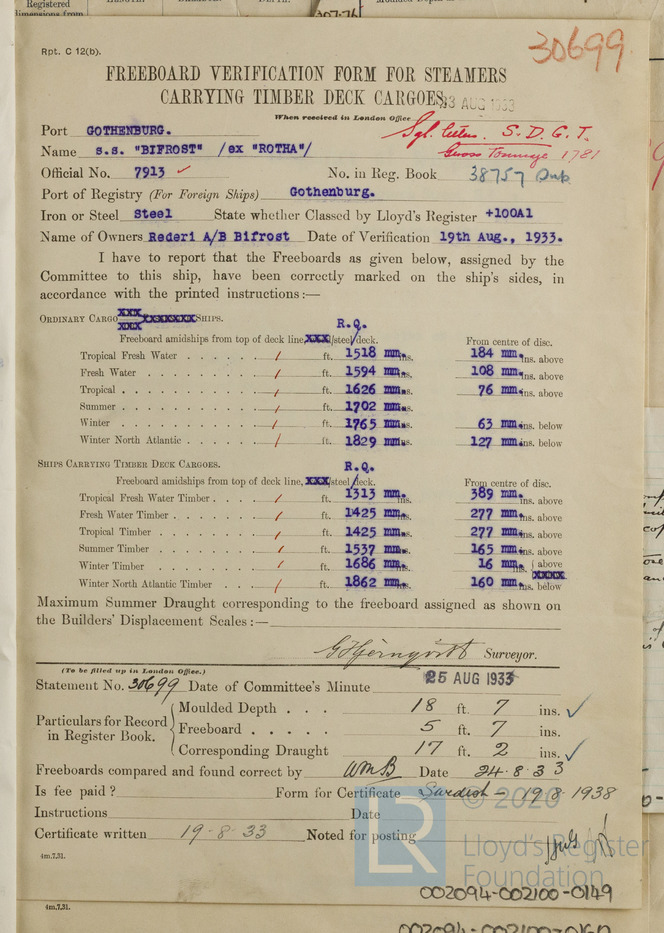 Registered
dimensions from
307·76
Rpt. C 12(b).
30699
FREEBOARD VERIFICATION FORM FOR STEAMERS
CARRYING TIMBER DECK CARGOES.
23 AUG 1933
When received in London Office
Port GOTHENBURG.
S. D. G. T.
Name s.s. "BIFROST" /ex "ROTHA"/
Gross Tonnage 1781
Official No. 7913
No. in Reg. Book 38757
Port of Registry (For Foreign Ships) Gothenburg.
Iron or Steel Steel State whether Classed by Lloyd's Register +100A1
Name of Owners Rederi A/B Bifrost Date of Verification 19th Aug., 1933.
I have to report that the Freeboards as given below, assigned by the
Committee to this ship, have been correctly marked on the ship's sides, in
accordance with the printed instructions:—
ORDINARY CARGO XXX XXXXXXXX SHIPS.
XXX
R.Q.
Freeboard amidships from top of deck line, XXX/steel/deck. From centre of disc.
Tropical Fresh Water . . . . . . / ft. 1518 mm. ins. 184 mm. ins. above
Fresh Water . . . . . . . / ft. 1594 mm. ins. 108 mm. ins. above
Tropical . . . . . . . . / ft. 1626 mm. ins. 76 mm. ins. above
Summer . . . . . . . . / ft. 1702 mm. ins.
Winter . . . . . . . . / ft. 1765 mm. ins. 63 mm. ins. below
Winter North Atlantic . . . . . . / ft. 1829 mm. ins. 127 mm. ins. below
SHIPS CARRYING TIMBER DECK CARGOES. R.Q.
Freeboard amidships from top of deck line, XXX/steel/deck. From centre of disc.
Tropical Fresh Water Timber . . . . / ft. 1313 mm. ins. 389 mm. ins. above
Fresh Water Timber . . . . . / ft. 1425 mm. ins. 277 mm. ins. above
Tropical Timber . . . . . . / ft. 1425 mm. ins. 277 mm. ins. above
Summer Timber . . . . . . / ft. 1537 mm. ins. 165 mm. ins. above
Winter Timber . . . . . . / ft. 1686 mm. ins. 16 mm. ins. above
XXXXX
Winter North Atlantic Timber . . . / ft. 1862 mm. ins. 160 mm. ins. below
Maximum Summer Draught corresponding to the freeboard assigned as shown on
the Builders' Displacement Scales :—
Surveyor.
(To be filled up in London Office.)
Statement No. 30699 Date of Committee's Minute 25 AUG 1933
Particulars for Record
in Register Book.
Moulded Depth . . . 18 ft. 7 ins.
Freeboard . . . . . 5 ft. 7 ins.
Corresponding Draught 17 ft. 2 ins.
Freeboards compared and found correct by WMB Date 24·8·33
Is fee paid ? Form for Certificate Swedish — 19 8 1938
Instructions Date
Certificate written 19·8·33 Noted for posting
4m.7.31.
© 2020
LR
Lloyd's Register
Foundation
002094-002100-0149
4m.7.31.
002094-002100-0160